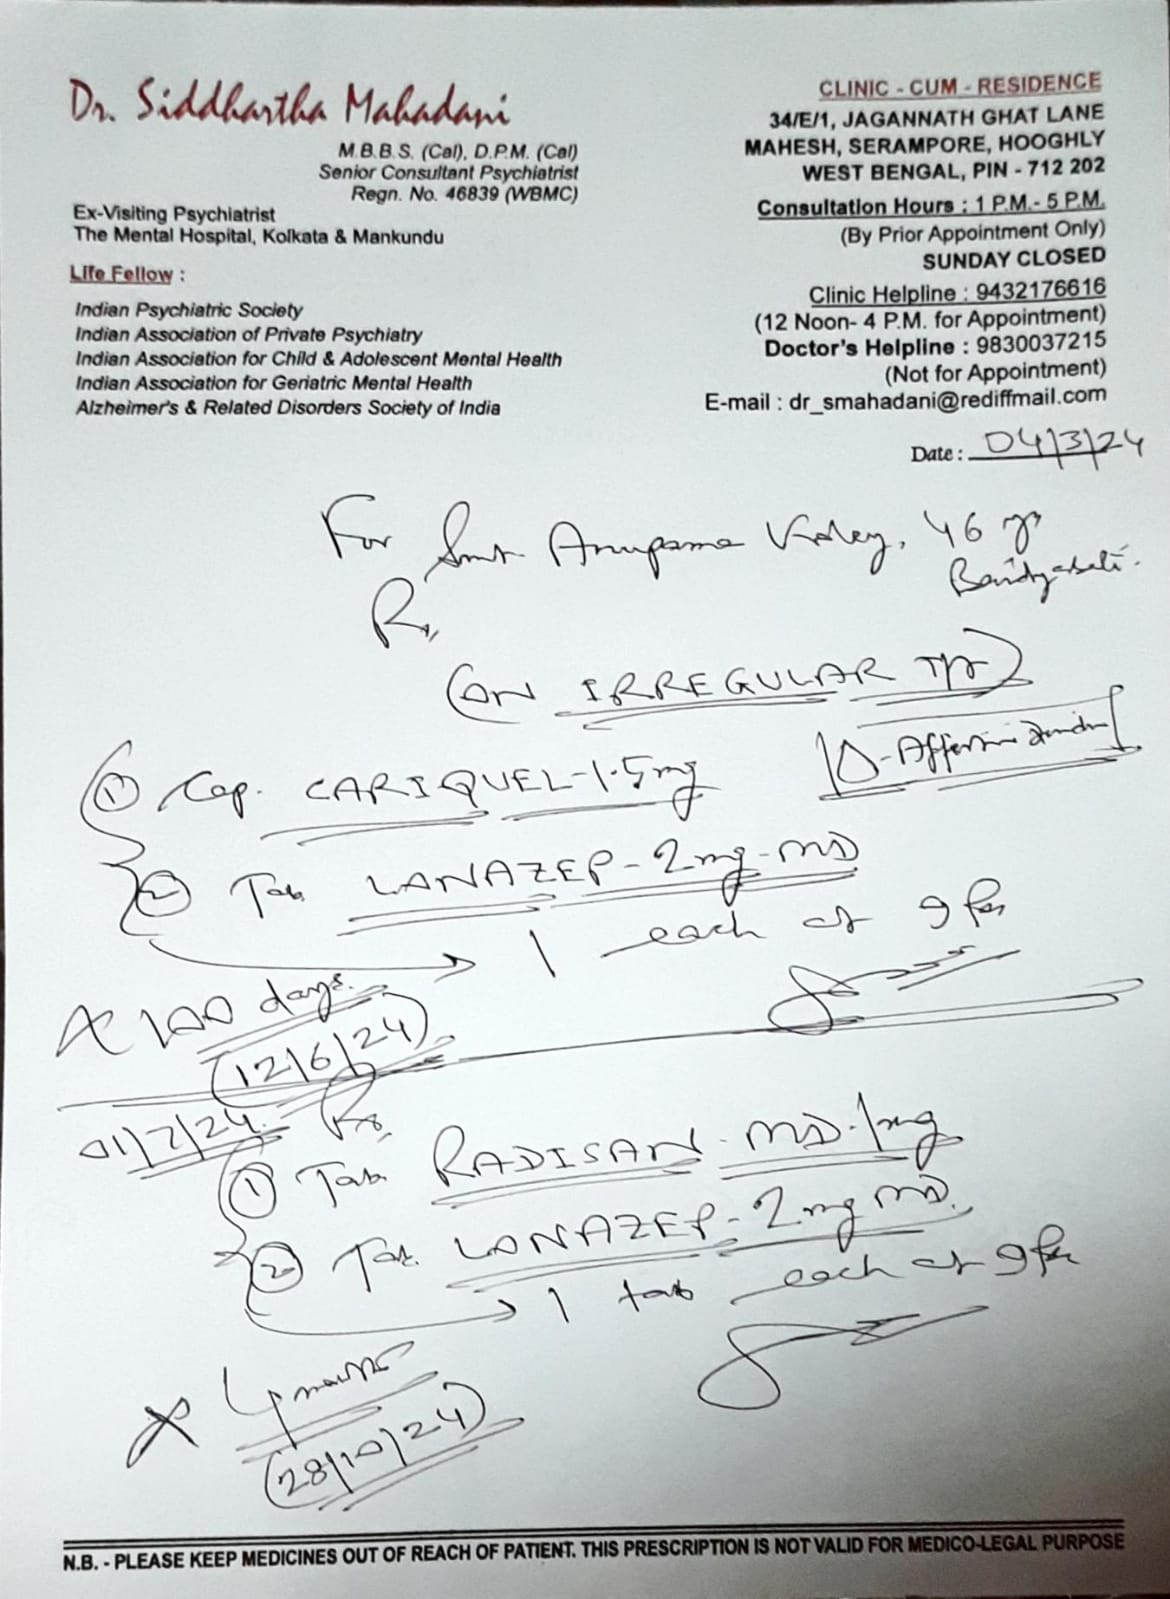 Dr. Siddhartha Mahadani
M.B.B.S. (Cal), D.P.M. (Cal)
Senior Consultant Psychiatrist
Regn. No. 46839 (WBMC)
Ex-Visiting Psychiatrist
The Mental Hospital, Kolkata & Mankundu
Life Fellow :
Indian Psychiatric Society
Indian Association of Private Psychiatry
Indian Association for Child & Adolescent Mental Health
Indian Association for Geriatric Mental Health
Alzheimer's & Related Disorders Society of India
CLINIC - CUM - RESIDENCE
34/E/1, JAGANNATH GHAT LANE
MAHESH, SERAMPORE, HOOGHLY
WEST BENGAL, PIN - 712 202
Consultation Hours : 1 P.M.- 5 P.M.
(By Prior Appointment Only)
SUNDAY CLOSED
Clinic Helpline : 9432176616
(12 Noon- 4 P.M. for Appointment)
Doctor's Helpline : 9830037215
(Not for Appointment)
E-mail : dr_smahadani@rediffmail.com
Date : 04/3/24
For Smt. Anupama 46 yrs
Baidyabati.
Rx,
(ON IRREGULAR T/t)
Δ- Affective
① Cap. CARIQUEL-1.5mg
② Tab LANAZEP-2mg-MD
1 each at 9 pm
x 100 days.
(12/6/24)
01/7/24. Rx,
① Tab. RADISAN-MD-1mg
② Tab. LANAZEP-2mg MD.
1 tab each at 9 pm
x 4 months
(28/10/24)
N.B. - PLEASE KEEP MEDICINES OUT OF REACH OF PATIENT. THIS PRESCRIPTION IS NOT VALID FOR MEDICO-LEGAL PURPOSE